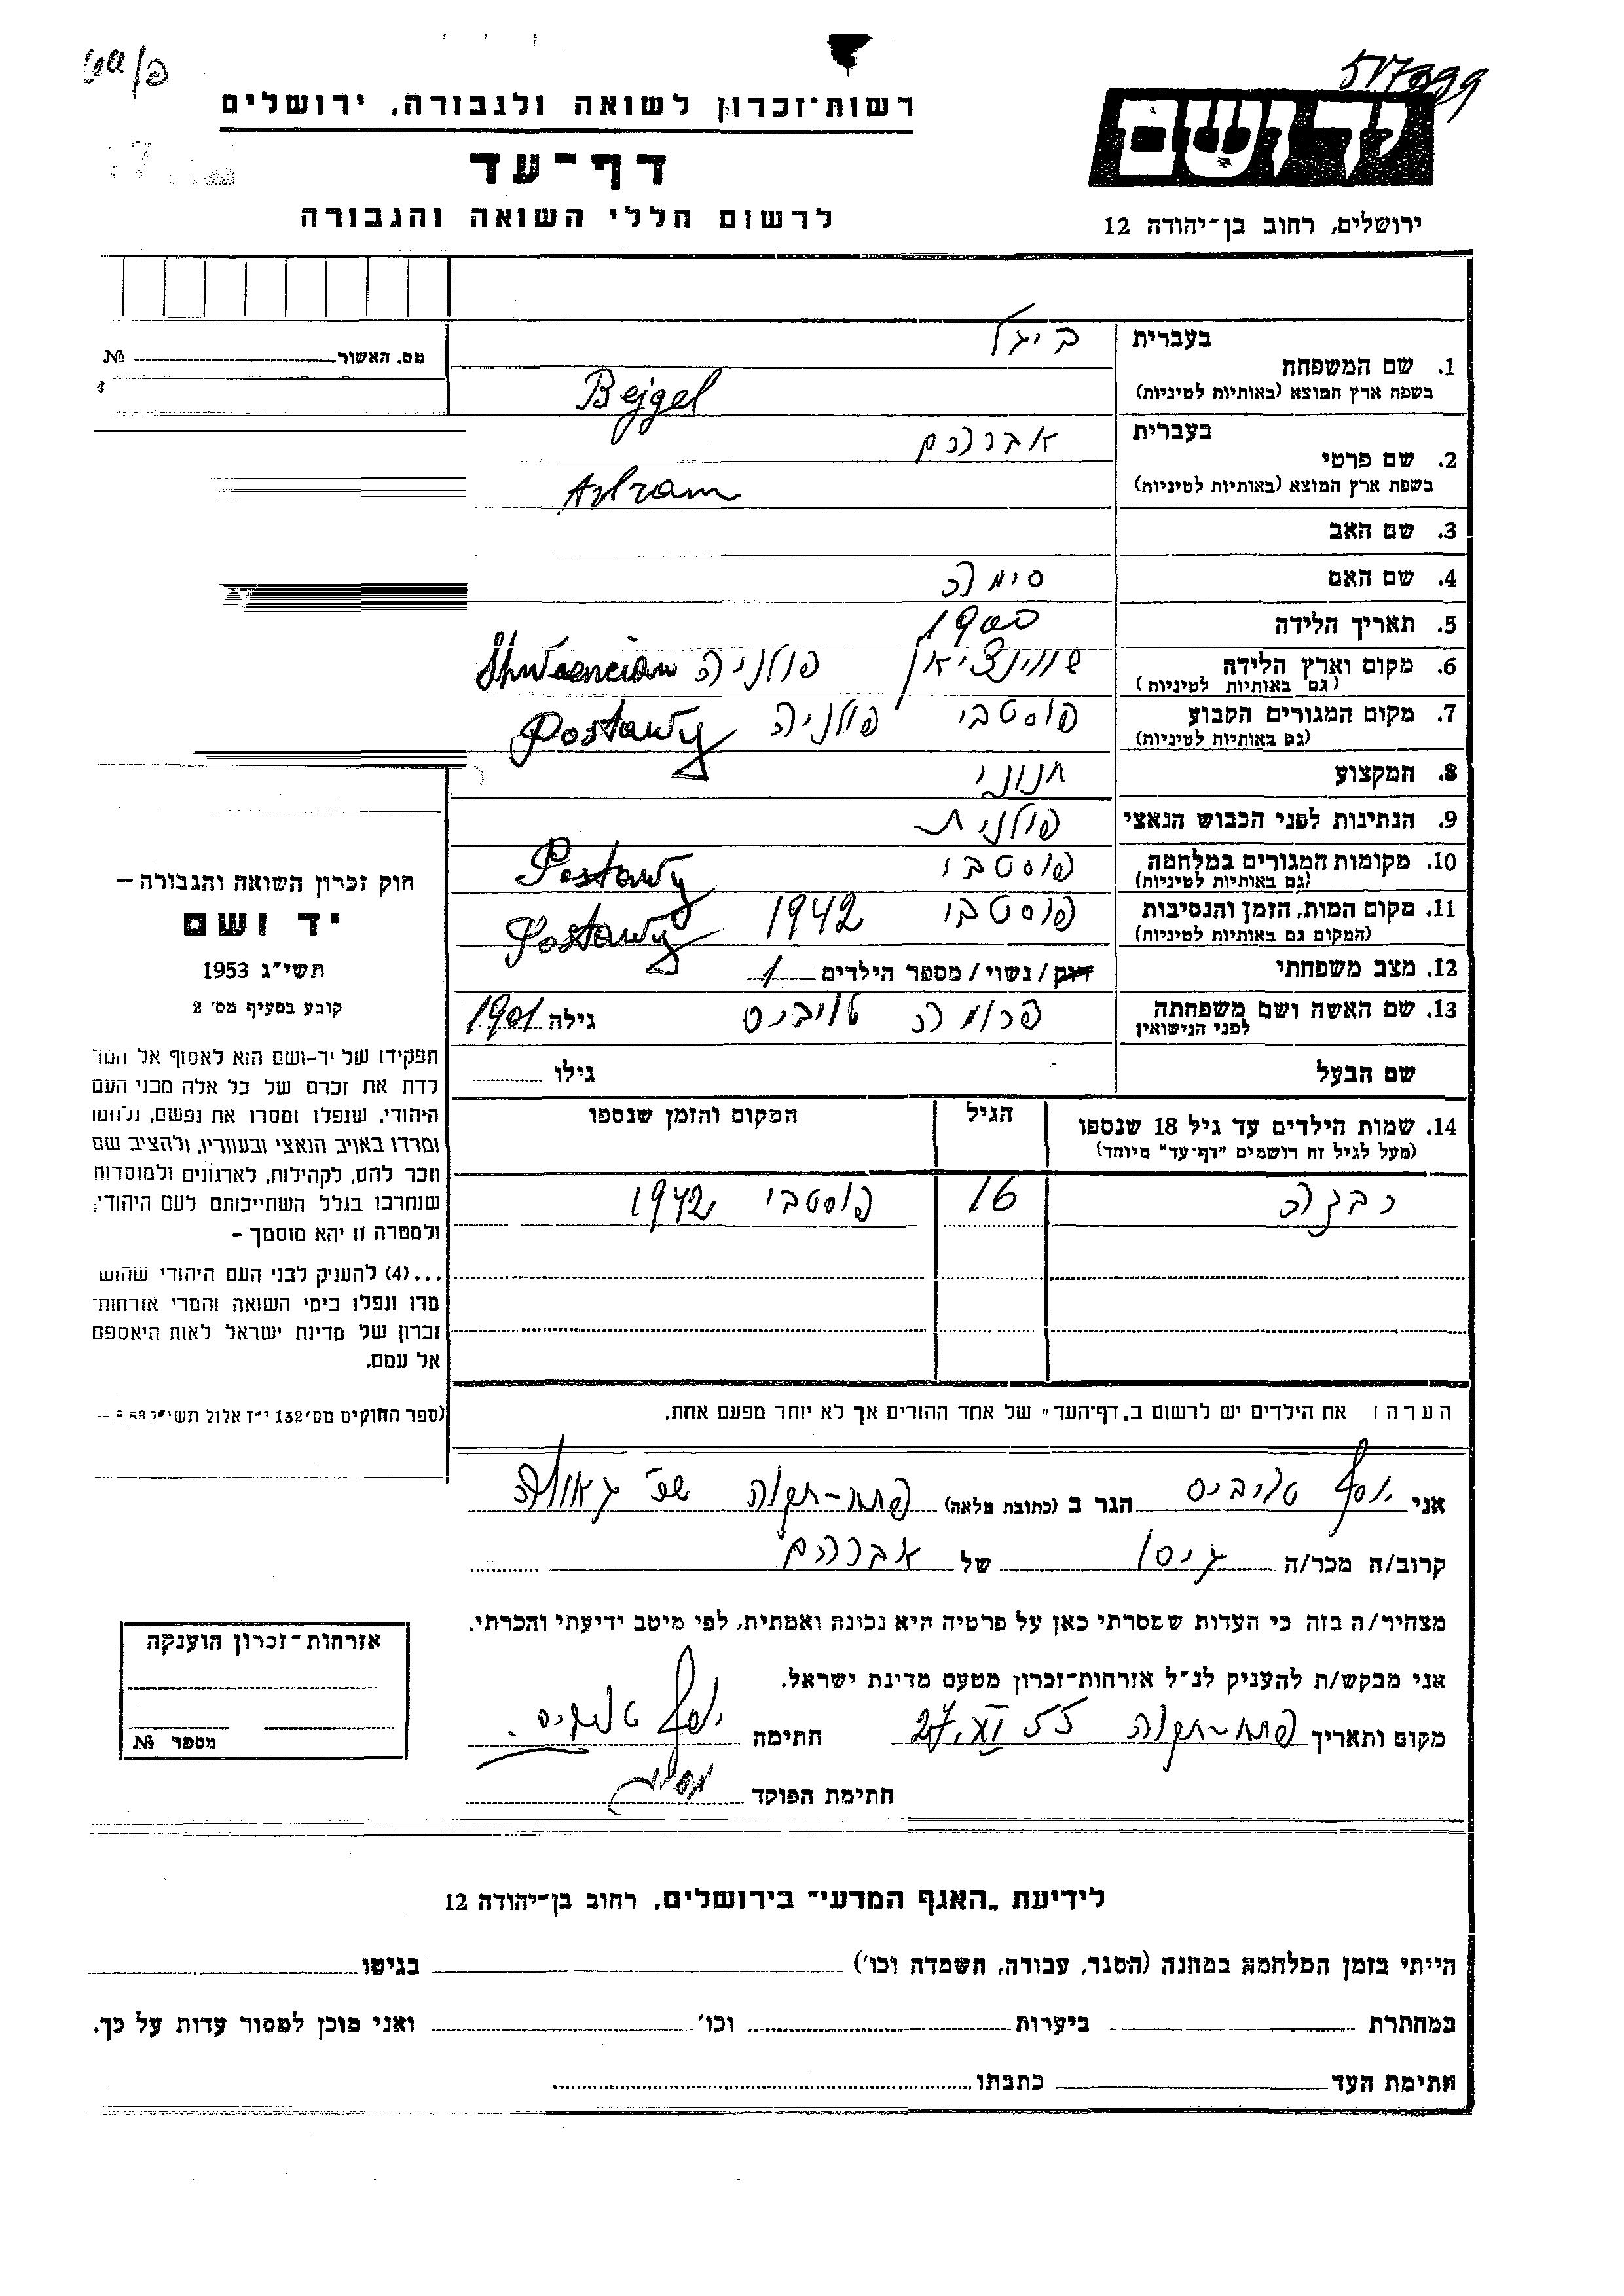 517999
רשות־זכרון לשואה ולגבורה, ירושלים
יד ושם
דף־עד
לרשום חללי השואה והגבורה
ירושלים, רחוב בן־יהודה 12
מס. האשור №
בעברית ביגל
1. שם המשפחה
בשפת ארץ המוצא (באותיות לטיניות) Bejgel
בעברית אברהם
2. שם פרטי
בשפת ארץ המוצא (באותיות לטיניות) Abram
3. שם האב
4. שם האם סימה
5. תאריך הלידה 1900
6. מקום וארץ הלידה שווינציאן פולניה
(גם באותיות לטיניות)
7. מקום המגורים הקבוע פוסטבי פולניה Postawy
(גם באותיות לטיניות)
8. המקצוע חנוני
9. הנתינות לפני הכבוש הנאצי פולנית
10. מקומות המגורים במלחמה פוסטבי Postawy
(גם באותיות לטיניות)
11. מקום המות, הזמן והנסיבות פוסטבי 1942 Postawy
(המקום גם באותיות לטיניות)
12. מצב משפחתי רווק / נשוי / מספר הילדים 1
13. שם האשה ושם משפחתה פרומה טייביס גילה 1901
לפני הנישואין
שם הבעל גילו
14. שמות הילדים עד גיל 18 שנספו הגיל המקום והזמן שנספו
(מעל לגיל זה רושמים "דף־עד" מיוחד)
16 פוסטבי 1942
חוק זכרון השואה והגבורה –
יד ושם
תשי״ג 1953
קובע בסעיף מס׳ 2
תפקידו של יד-ושם הוא לאסוף אל המו
לדת את זכרם של כל אלה מבני העם
היהודי, שנפלו ומסרו את נפשם, נלחמו
ומרדו באויב הנאצי ובעוזריו, ולהציב שם
וזכר להם, לקהילות, לארגונים ולמוסדות
שנחרבו בגלל השתייכותם לעם היהודי;
ולמטרה זו יהא מוסמך –
...(4) להעניק לבני העם היהודי שהוש
מדו ונפלו בימי השואה והמרי אזרחות־
זכרון של מדינת ישראל לאות היאספם
אל עמם.
(ספר החוקים מס׳ 132 י״ז אלול תשי״ג
הערה: את הילדים יש לרשום ב„דף־העד״ של אחד ההורים אך לא יוחר מפעם אחת.
אני יוסף טייביס הגר ב (כתובת מלאה) פתח-תקוה שכ׳ גאולה
קרוב/ה מכר/ה גיסו של אברהם
מצהיר/ה בזה כי העדות שמסרתי כאן על פרטיה היא נכונה ואמתית, לפי מיטב ידיעתי והכרתי.
אני מבקש/ת להעניק לנ״ל אזרחות־זכרון מטעם מדינת ישראל.
מקום ותאריך פתח-תקוה 27.XI.55 חתימה יוסף טייביס
חתימת הפוקד
אזרחות־זכרון הוענקה
מספר №
לידיעת „האגף המדעי״ בירושלים, רחוב בן־יהודה 12
הייתי בזמן המלחמה במחנה (הסגר, עבודה, השמדה וכו׳) בגיטו
במחתרת ביערות וכו׳ ואני מוכן למסור עדות על כך.
חתימת העד כתבתו